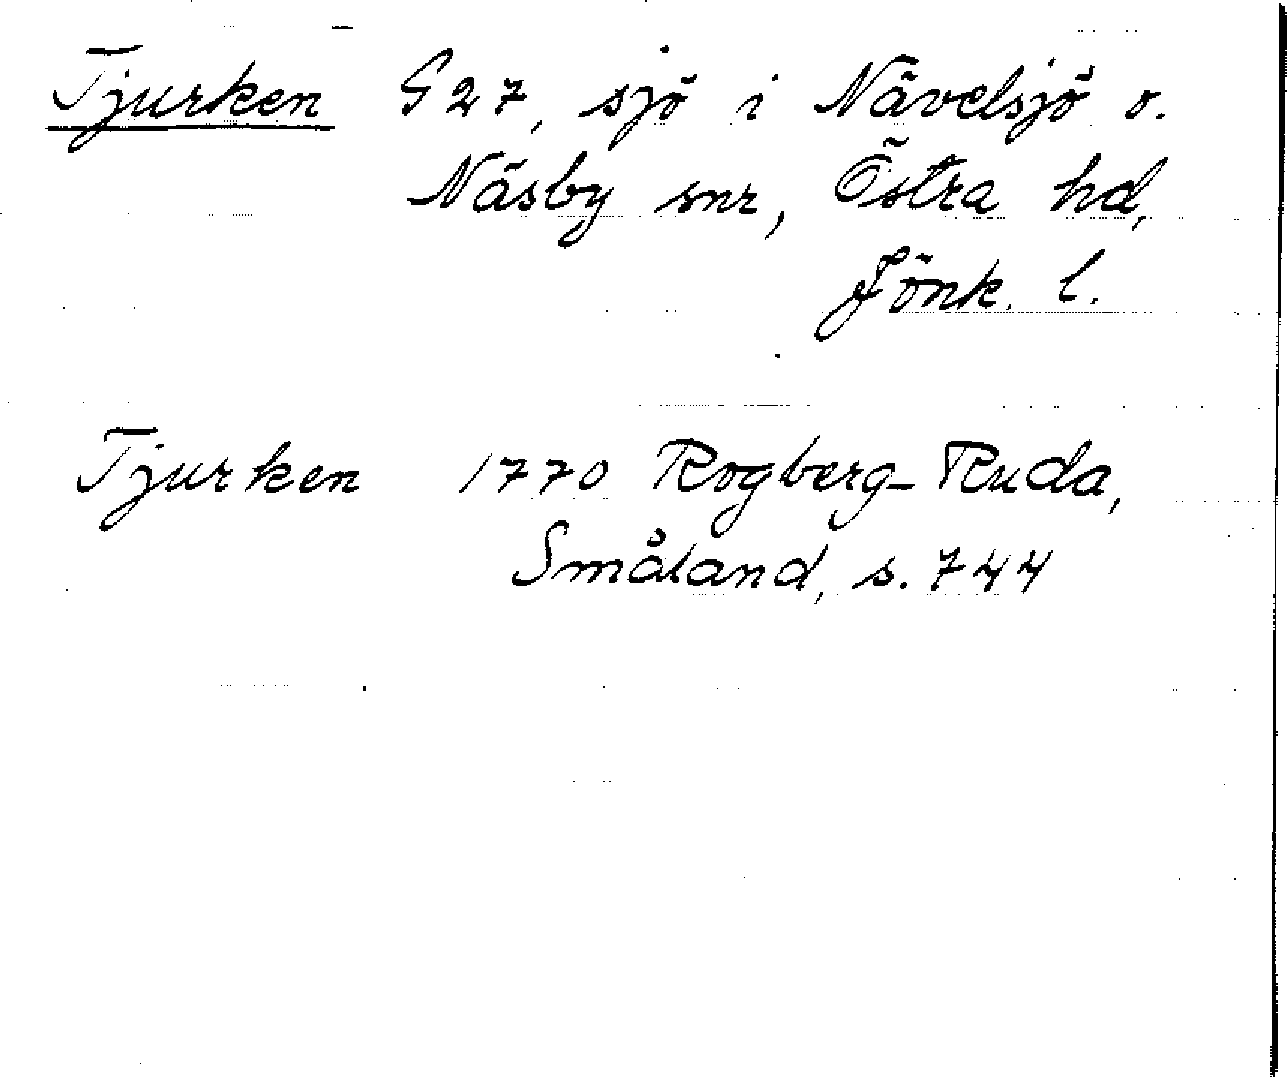 Tjurken G27, sjö i Nävelsjö o.
Näsby snr, Östra hd,
Jönk. l.
Tjurken 1770 Rogberg-Ruda,
Småland, s. 744